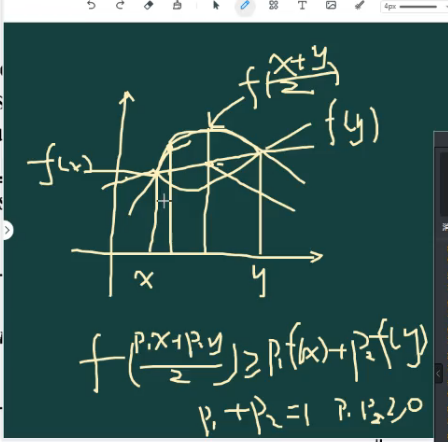 f(x+y/2)
f(y)
f(x)
x y
f(p₁x+p₂y/2) ≥ p₁f(x)+p₂f(y)
p₁+p₂=1 p₁p₂≥0
4px